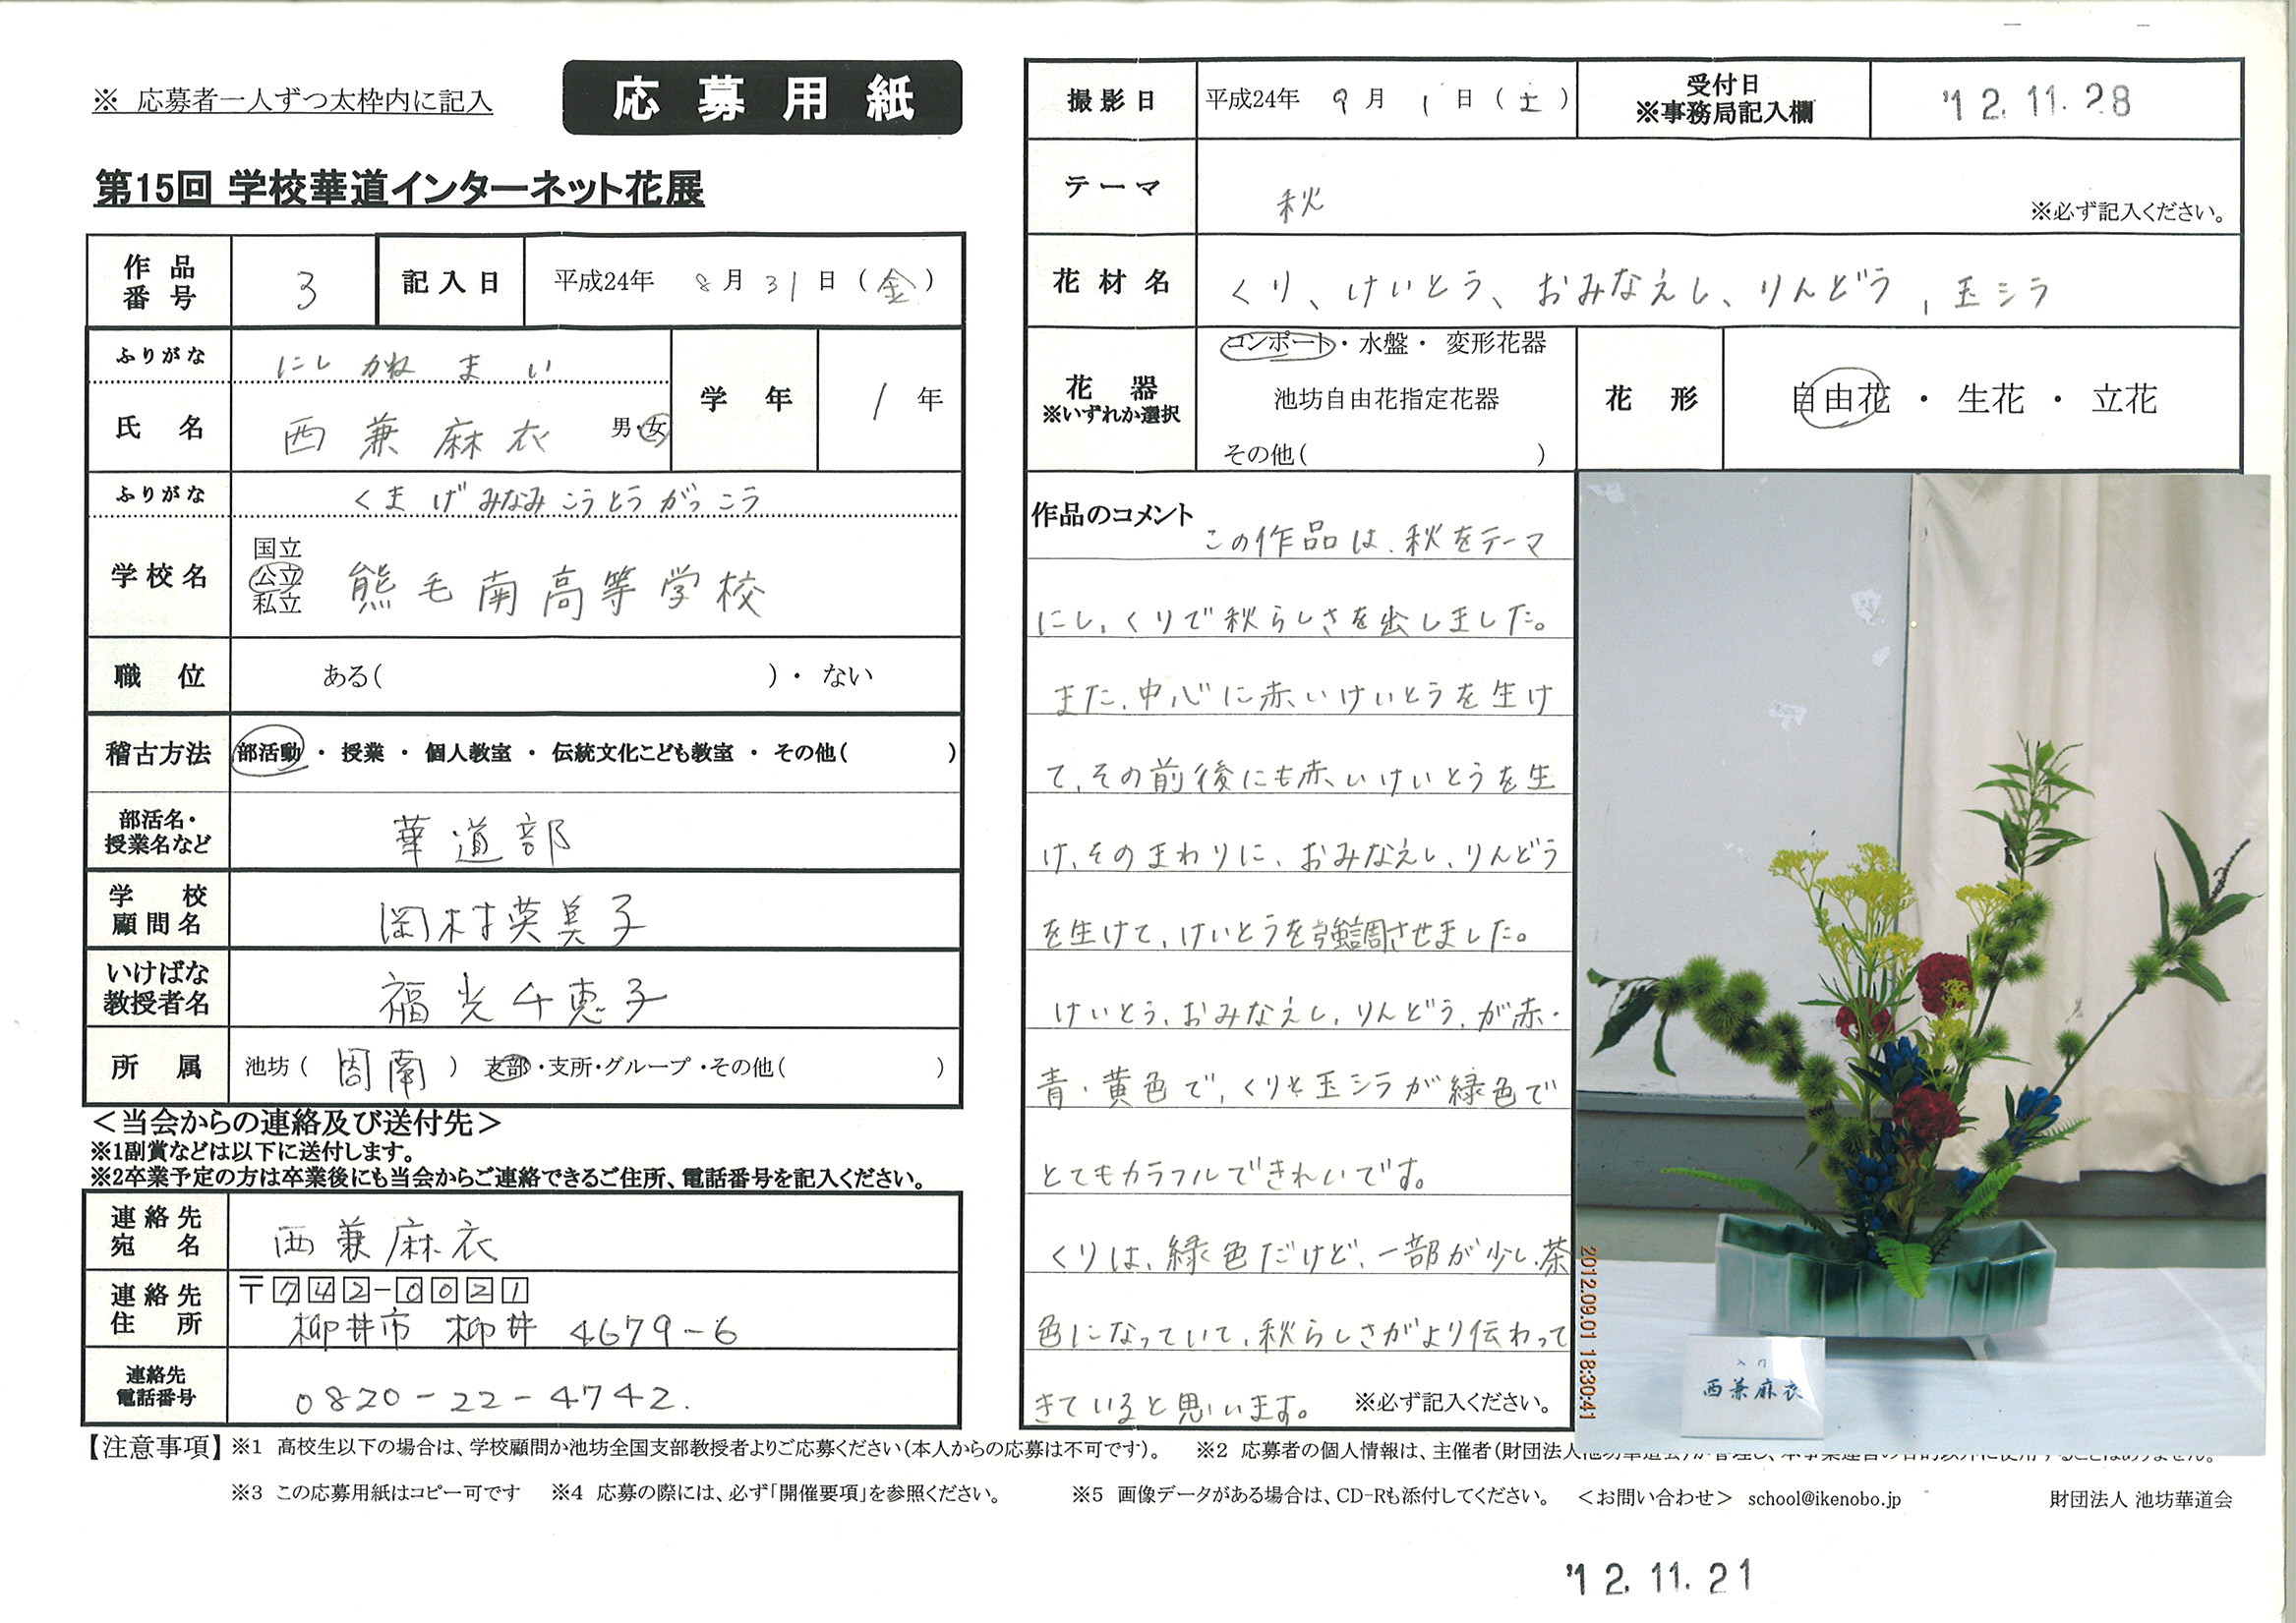 ※ 応募者一人ずつ太枠内に記入
応募用紙
第15回 学校華道インターネット花展
作品番号 3 記入日 平成24年 8月31日(金)
ふりがな にしかね まい
氏名 西兼麻衣 男・女 学年 1年
ふりがな くまげみなみこうとうがっこう
学校名 国立 公立 私立 熊毛南高等学校
職位 ある( )・ ない
稽古方法 部活動 ・ 授業 ・ 個人教室 ・ 伝統文化こども教室 ・ その他( )
部活名・授業名など 華道部
学校顧問名 岡村英美子
いけばな教授者名 福光千恵子
所属 池坊( 周南 ) 支部・支所・グループ・その他( )
<当会からの連絡及び送付先>
※1副賞などは以下に送付します。
※2卒業予定の方は卒業後にも当会からご連絡できるご住所、電話番号を記入ください。
連絡先宛名 西兼麻衣
連絡先住所 〒742-0021
柳井市 柳井 4679-6
連絡先電話番号 0820-22-4742.
撮影日 平成24年 9月 1日(土) 受付日 ※事務局記入欄 '12.11.28
テーマ 秋 ※必ず記入ください。
花材名 くり、けいとう、おみなえし、りんどう,玉シラ
花器 ※いずれか選択 コンポート・水盤・ 変形花器
池坊自由花指定花器
その他( )
花形 自由花 ・ 生花 ・ 立花
作品のコメント
この作品は、秋をテーマ
にし、くりで秋らしさを出しました。
また、中心に赤いけいとうを生け
て、その前後にも赤いけいとうを生
け、そのまわりに、おみなえし、りんどう
を生けて、けいとうを強調させました。
けいとう、おみなえし、りんどう、が赤・
青・黄色で、くりと玉シラが緑色で
とてもカラフルできれいです。
くりは、緑色だけど、一部が少し、茶
色になっていて、秋らしさがより伝わって
きていると思います。 ※必ず記入ください。
2012.09.01 18:30:41
入門
西兼麻衣
【注意事項】 ※1 高校生以下の場合は、学校顧問か池坊全国支部教授者よりご応募ください(本人からの応募は不可です)。 ※2 応募者の個人情報は、主催者(財団法人池坊華道会)が管理し、本事業運営の目的以外に使用することはありません。
※3 この応募用紙はコピー可です ※4 応募の際には、必ず「開催要項」を参照ください。 ※5 画像データがある場合は、CD-Rも添付してください。 <お問い合わせ> school@ikenobo.jp 財団法人 池坊華道会
'12.11.21